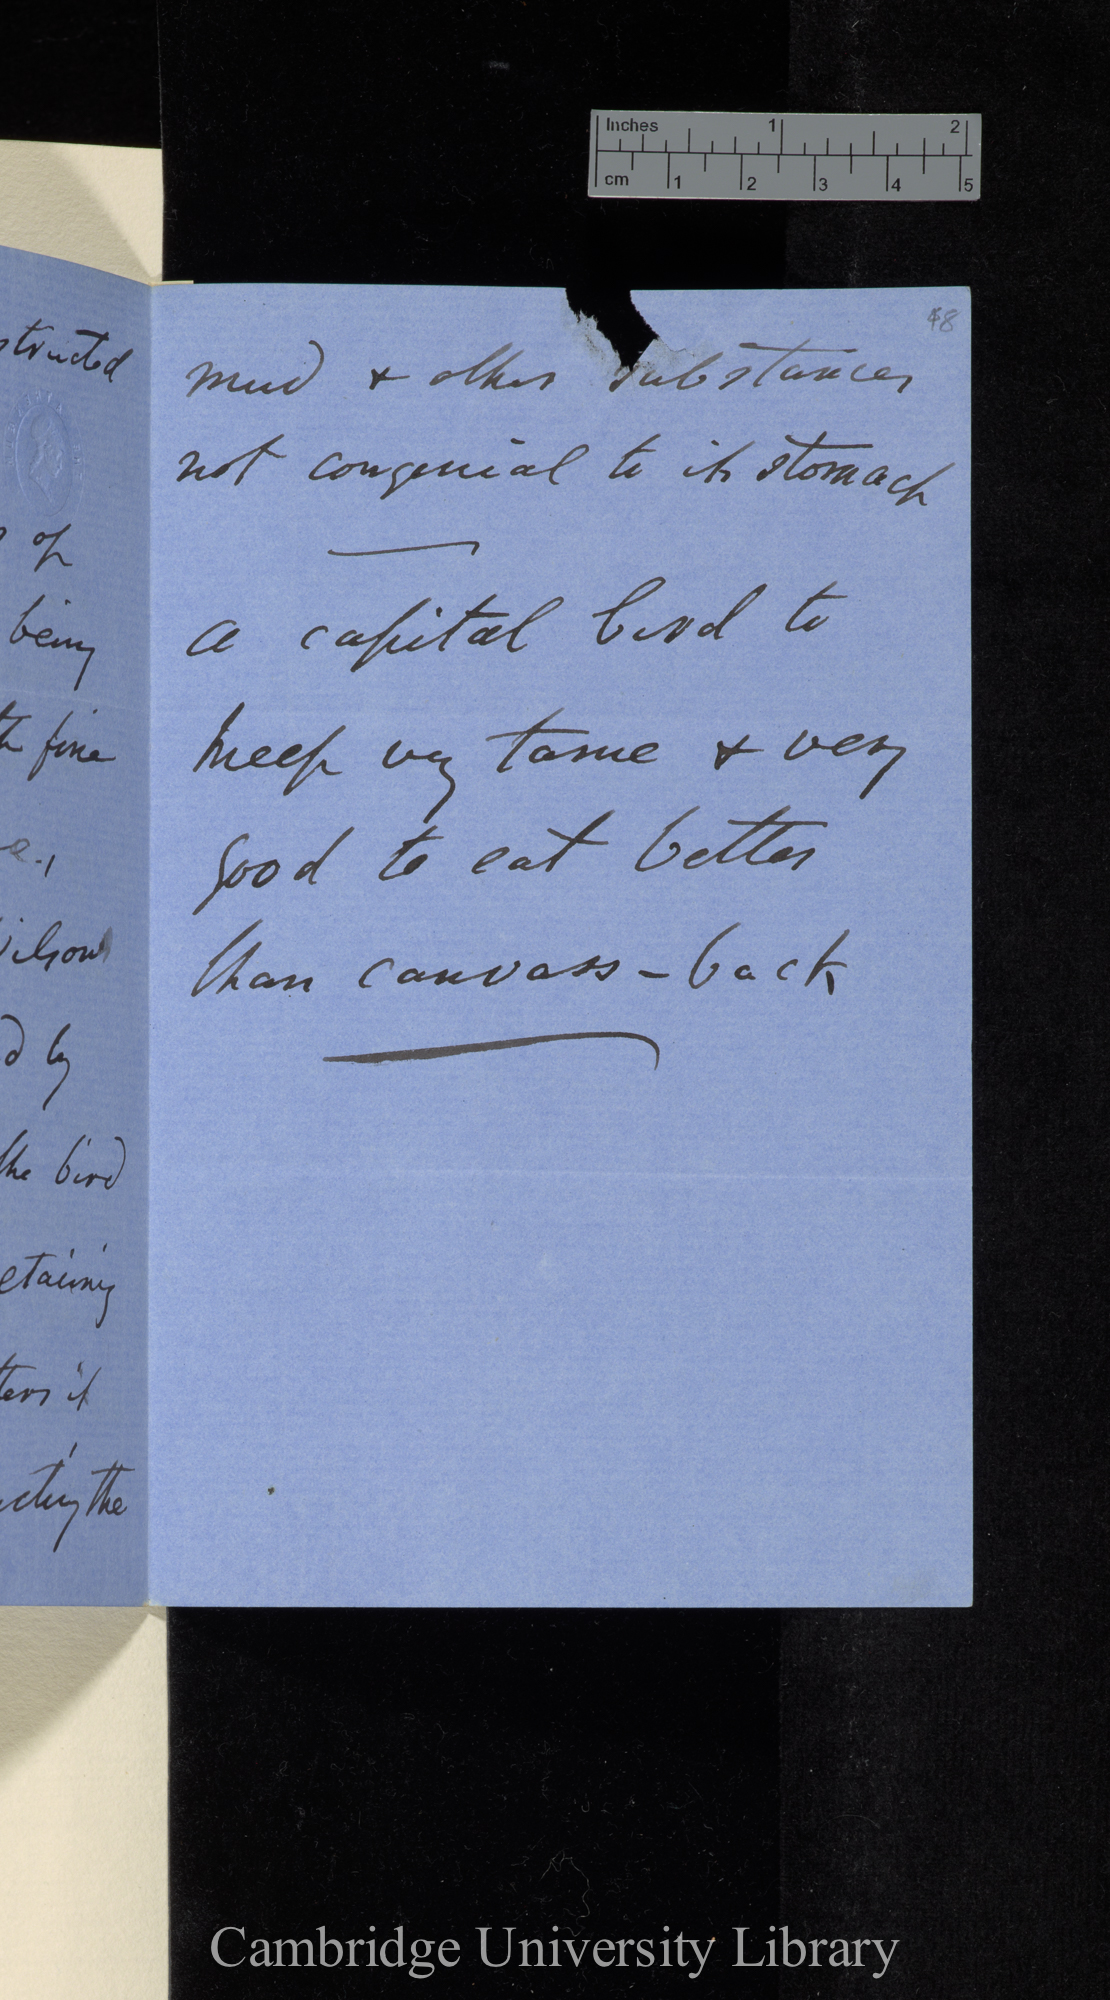 Inches 1 2
cm 1 2 3 4 5
48
structed
of
being
fine
Wilson
by
the bird
etaining
it
the
mud & other substances
not congenial to its stomach
a capital bird to
keep very tame & very
good to eat better
than canvass-back
Cambridge University Library